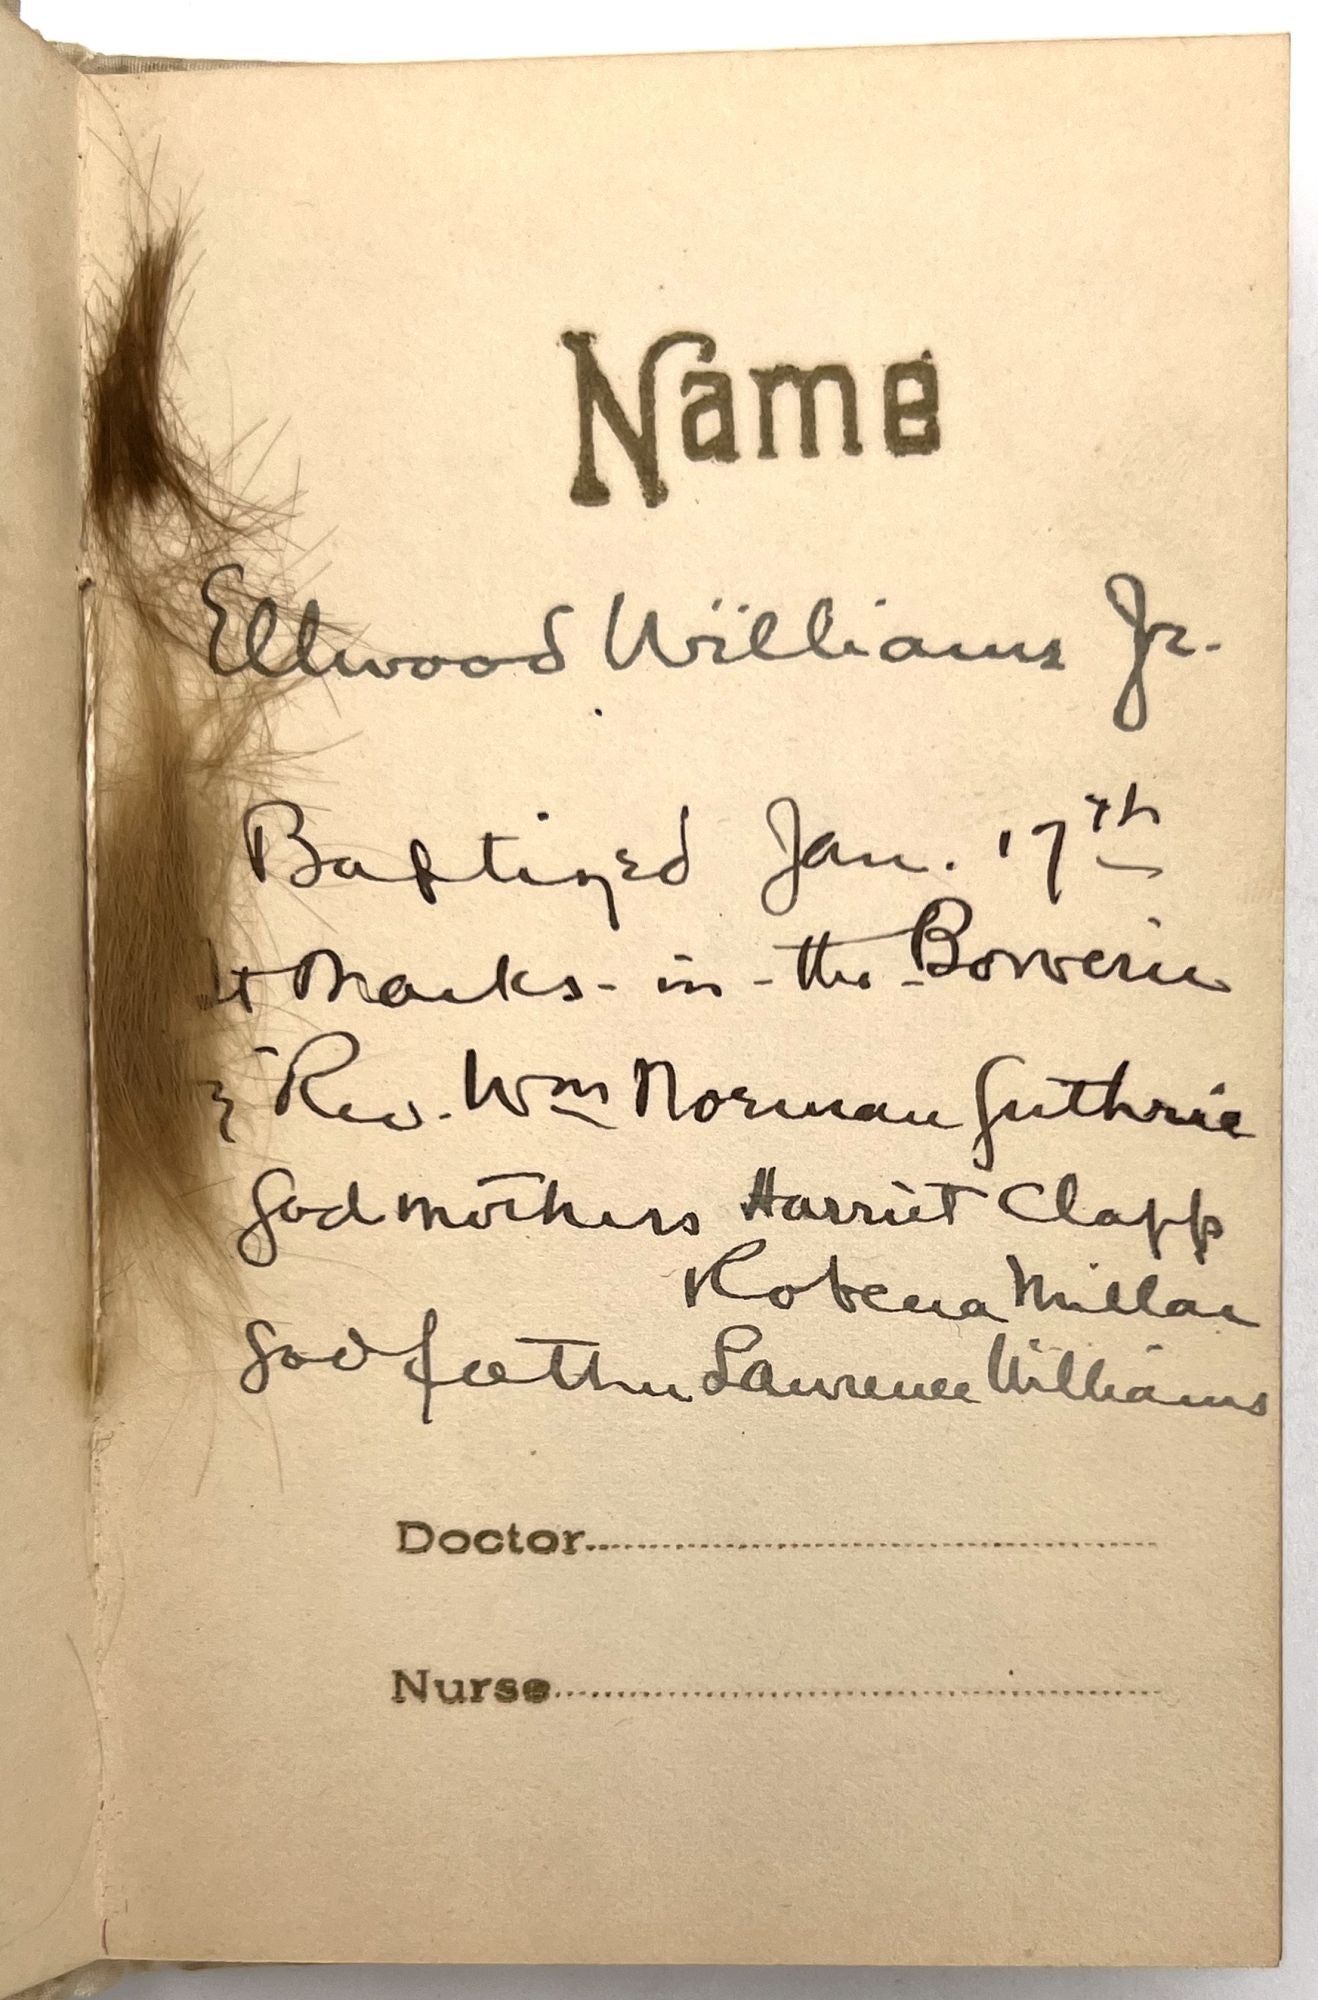 Name
Ellwood Williams Jr.
Baptized Jan. 17th
St Marks-in-the-Bowerie
Rev. Wm Norman Guthrie
Godmothers Harriet Clapp
Robena Millar
Godfather Lawrence Williams
Doctor
Nurse